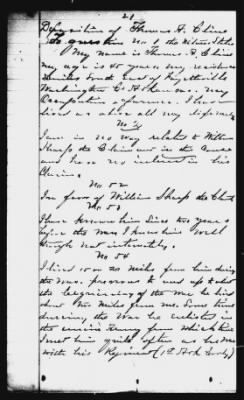 21
Deposition of Thomas A. Cline
To question No 1 the witness states
My name is Thomas A. Cline
my age is 45 years, my residence
miles South East of Fayetteville
Washington Co Arkansas. my
Occupation a farmer. I have
lived as above all my life
No 2
I am in no way related to William
Sharp the Claimant in the Cause
and have no interest in his
Claim.
No 52
In favor of William Sharp the Claimt
No 53
I have known him Since two years
before the War. I knew him well
though not intimately.
No 54
I lived 15 or 20 miles from him during
the War. previous to and up to about
the beginning of the War he lived
about two miles from me. Some time
during the War he enlisted in
the union Army from which time
I met him quite often as he was
with his Regiment (1st Ark Cavly)